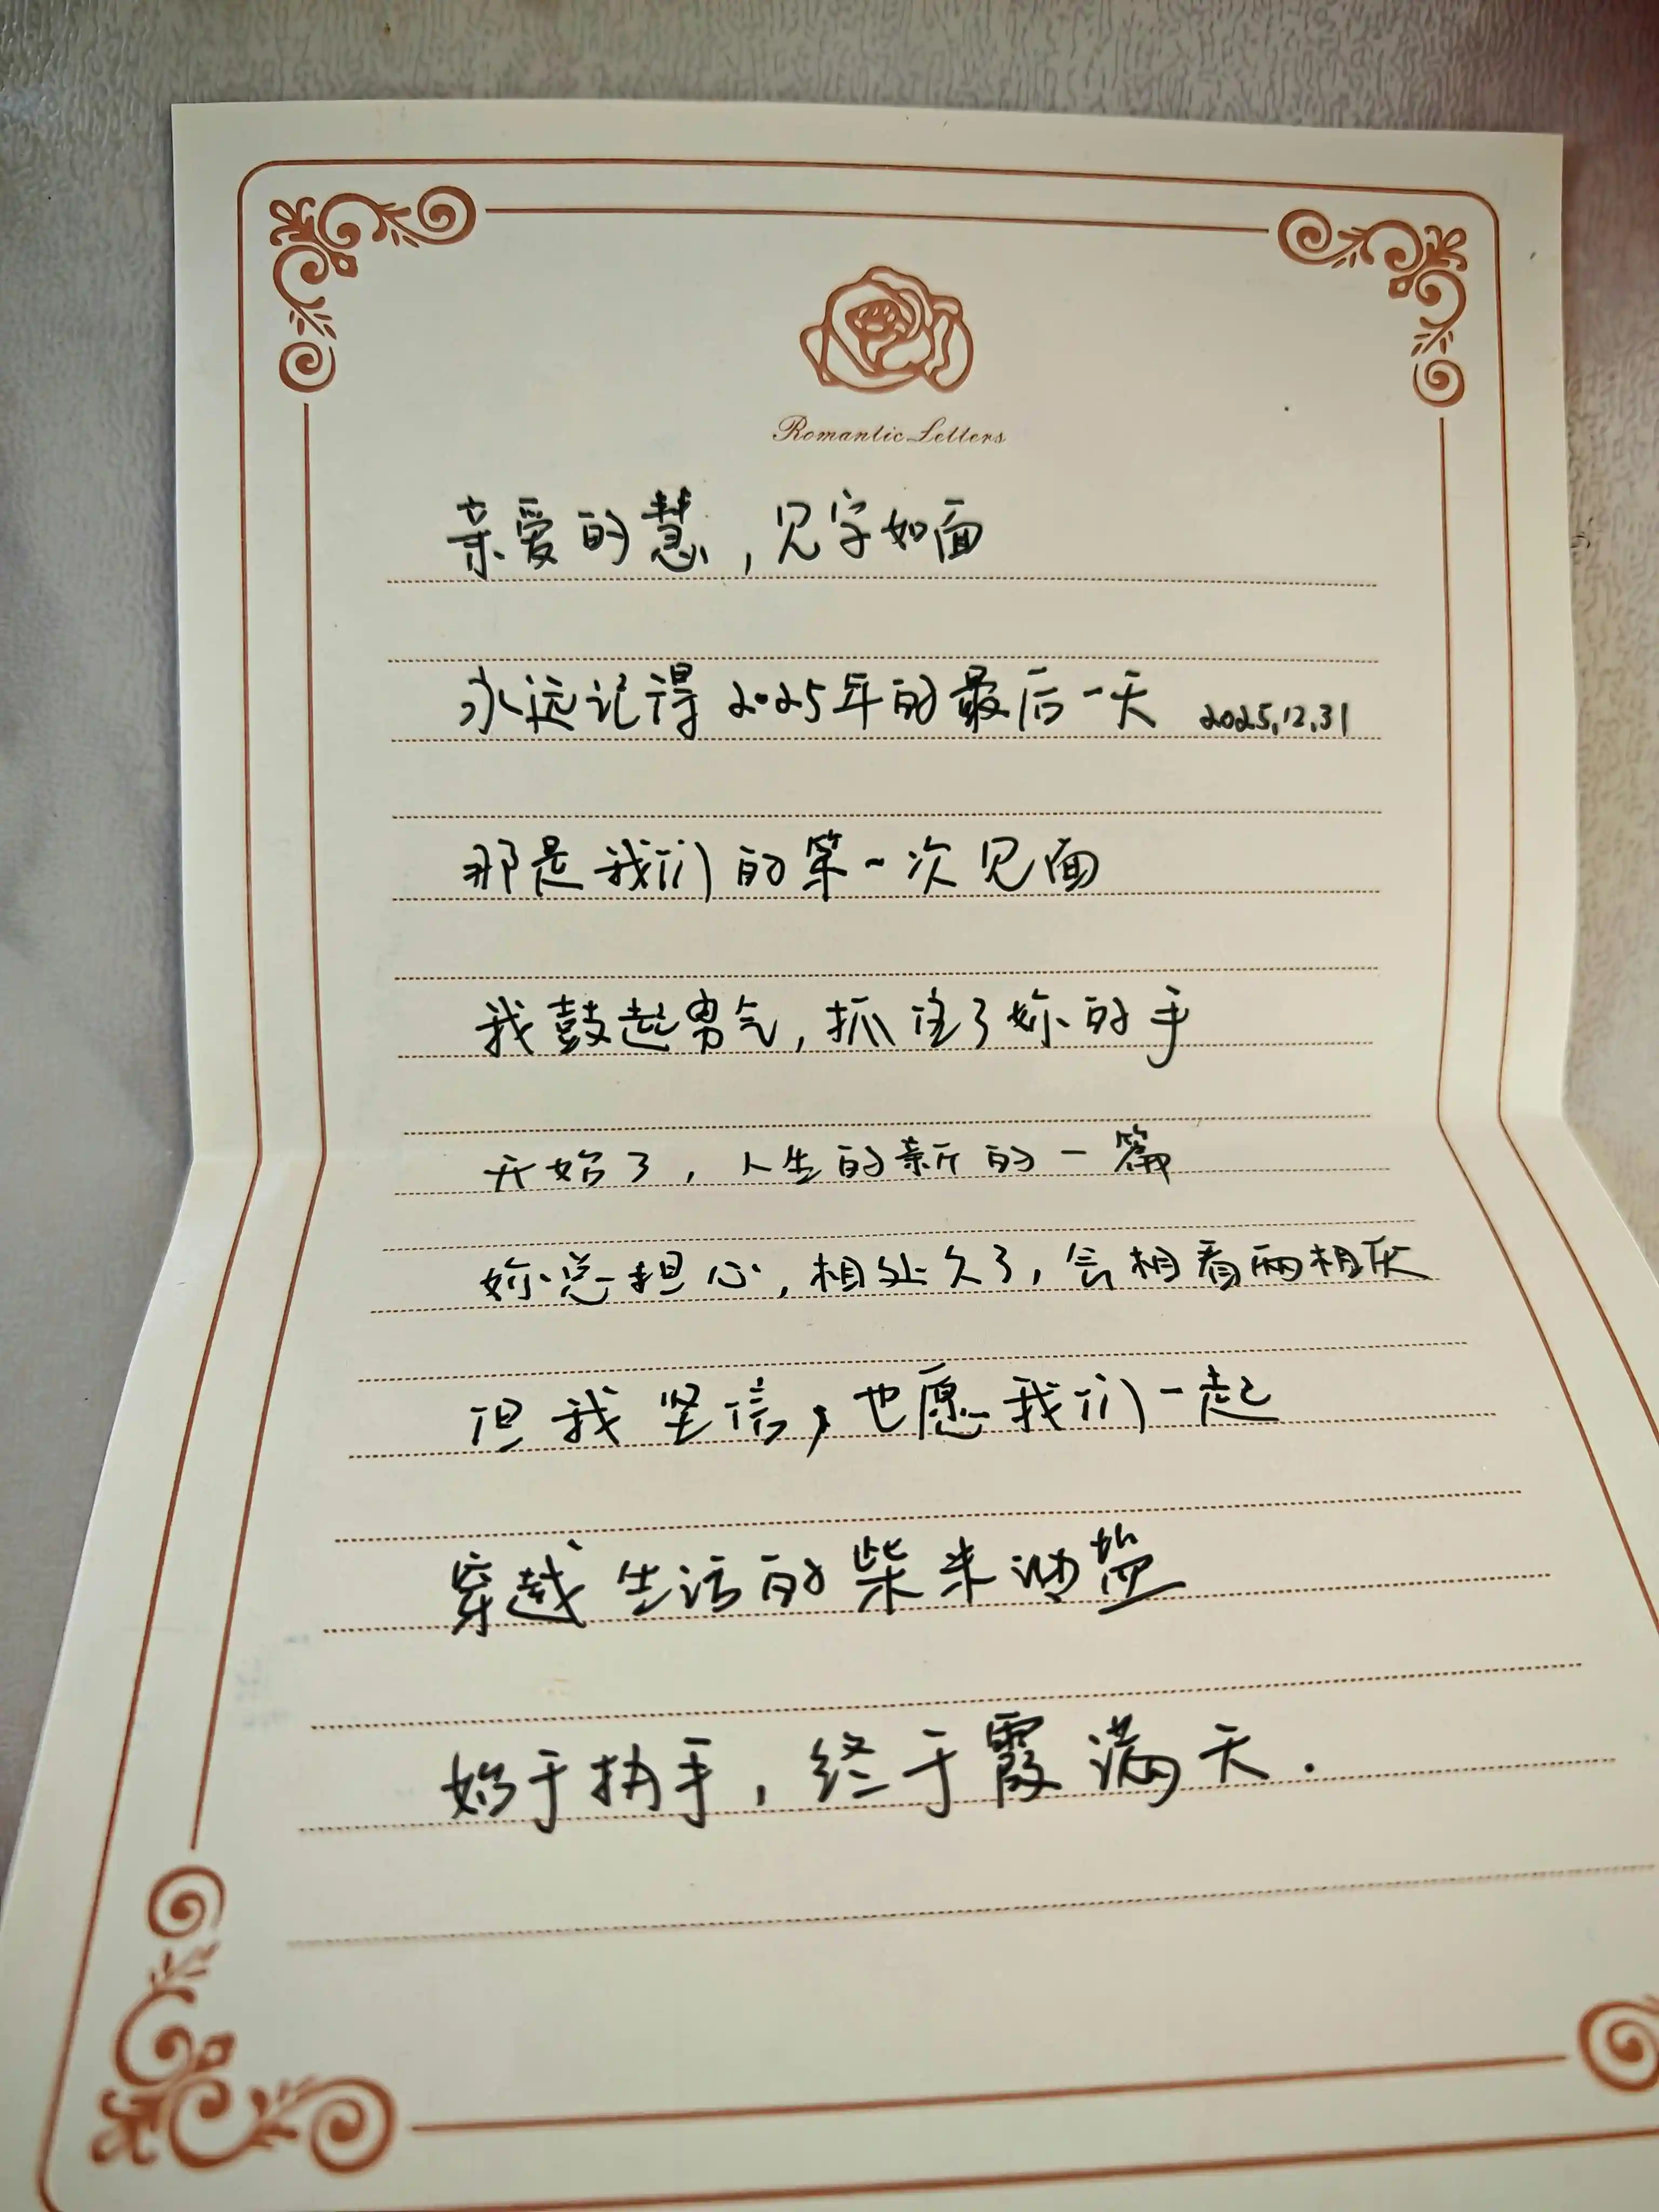 Romantic Letters
亲爱的慧,见字如面
永远记得2025年的最后一天 2025.12.31
那是我们的第一次见面
我鼓起勇气,抓住了妳的手
开始了,人生的新的一篇
妳总担心,相处久了,会相看两相厌
但我坚信,也愿我们一起
穿越生活的柴米油盐
始于执手,终于霞满天.